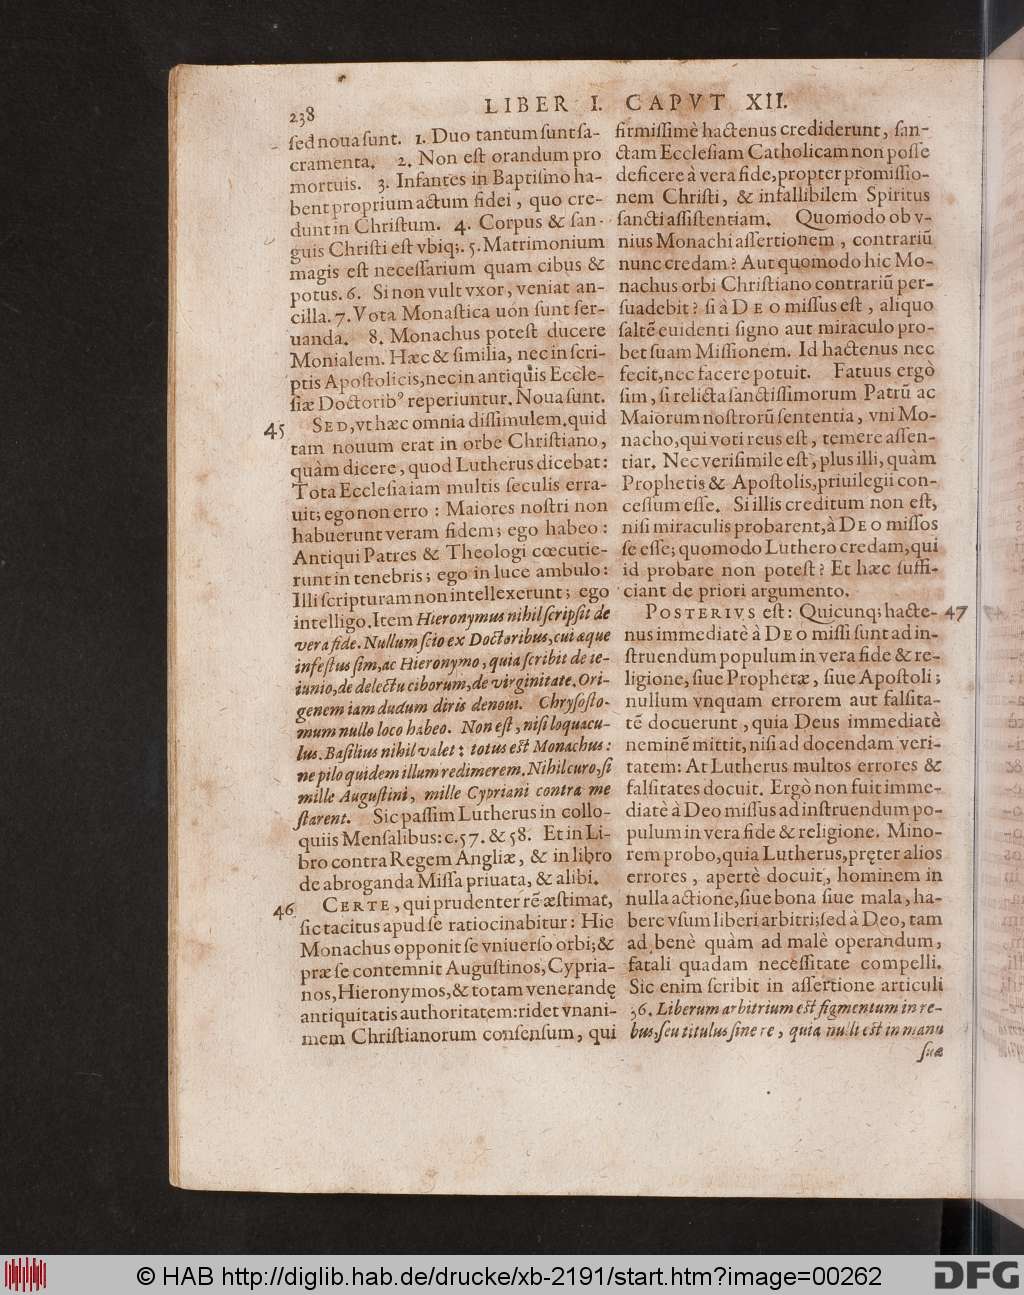 238
LIBER I. CAPVT XII.
ſed noua ſunt. 1. Duo tantum ſunt ſa-
cramenta. 2. Non eſt orandum pro
mortuis. 3. Infantes in Baptiſmo ha-
bent proprium actum fidei, quo cre-
dunt in Chriſtum. 4. Corpus & ſan-
guis Chriſti eſt vbiq;. 5. Matrimonium
magis eſt neceſſarium quam cibus &
potus. 6. Si non vult vxor, veniat an-
cilla. 7. Vota Monaſtica uon ſunt ſer-
uanda. 8. Monachus poteſt ducere
Monialem. Hæc & ſimilia, nec in ſcri-
ptis Apoſtolicis, nec in antiquis Eccle-
ſiæ Doctoribꝰ reperiuntur. Noua ſunt.
45 SED, vt hæc omnia diſſimulem. quid
tam nouum erat in orbe Chriſtiano,
quàm dicere, quod Lutherus dicebat:
Tota Eccleſia iam multis ſeculis erra-
uit; ego non erro: Maiores noſtri non
habuerunt veram fidem; ego habeo:
Antiqui Patres & Theologi cœcutie-
runt in tenebris; ego in luce ambulo:
Illi ſcripturam non intellexerunt; ego
intelligo. Item Hieronymus nihil ſcripſit de
vera fide. Nullum ſcio ex Doctoribus, cui æque
infeſtus ſim, ac Hieronymo, quia ſcribit de ie-
iunio, de delectu ciborum, de virginitate. Ori-
genem iam dudum diris denoui. Chryſoſto-
mum nullo loco habeo. Non eſt, niſi loquacu-
lus. Baſilius nihil valet: totus eſt Monachus:
ne pilo quidem illum redimerem. Nihil curo, ſi
mille Auguſtini, mille Cypriani contra me
ſtarent. Sic paſſim Lutherus in collo-
quiis Menſalibus: c. 57. & 58. Et in Li-
bro contra Regem Angliæ, & in libro
de abroganda Miſſa priuata, & alibi.
46 CERTE, qui prudenter rē æſtimat,
ſic tacitus apud ſe ratiocinabitur: Hic
Monachus opponit ſe vniuerſo orbi; &
præ ſe contemnit Auguſtinos, Cypria-
nos, Hieronymos, & totam venerandę
antiquitatis authoritatem: ridet vnani-
mem Chriſtianorum conſenſum, qui
firmiſſimè hactenus crediderunt, ſan-
ctam Eccleſiam Catholicam non poſſe
deficere à vera fide, propter promiſſio-
nem Chriſti, & infallibilem Spiritus
ſancti aſſiſtentiam. Quomodo ob v-
nius Monachi aſſertionem, contrariū
nunc credam? Aut quomodo hic Mo-
nachus orbi Chriſtiano contrariū per-
ſuadebit? ſi à DEO miſſus eſt, aliquo
ſaltē euidenti ſigno aut miraculo pro-
bet ſuam Miſſionem. Id hactenus nec
fecit, nec facere potuit. Fatuus ergò
ſim, ſi relicta ſanctiſſimorum Patrū ac
Maiorum noſtrorū ſententia, vni Mo-
nacho, qui voti reus eſt, temere aſſen-
tiar. Nec veriſimile eſt, plus illi, quàm
Prophetis & Apoſtolis, priuilegii con-
ceſſum eſſe. Si illis creditum non eſt,
niſi miraculis probarent, à DEO miſſos
ſe eſſe; quomodo Luthero credam, qui
id probare non poteſt? Et hæc ſuffi-
ciant de priori argumento.
POSTERIVS eſt: Quicunq; hacte- 47
nus immediatè à DEO miſſi ſunt ad in-
ſtruendum populum in vera fide & re-
ligione, ſiue Prophetæ, ſiue Apoſtoli;
nullum vnquam errorem aut falſita-
tē docuerunt, quia Deus immediatè
neminē mittit, niſi ad docendam veri-
tatem: At Lutherus multos errores &
falſitates docuit. Ergò non fuit imme-
diatè à Deo miſſus ad inſtruendum po-
pulum in vera fide & religione. Mino-
rem probo, quia Lutherus, pręter alios
errores, apertè docuit, hominem in
nulla actione, ſiue bona ſiue mala, ha-
bere vſum liberi arbitri; ſed à Deo, tam
ad benè quàm ad malè operandum,
fatali quadam neceſſitate compelli.
Sic enim ſcribit in aſſertione articuli
36. Liberum arbitrium eſt figmentum in re-
bus, ſeu titulus ſine re, quia nulli eſt in manu
ſuæ
© HAB http://diglib.hab.de/drucke/xb-2191/start.htm?image=00262
DFG